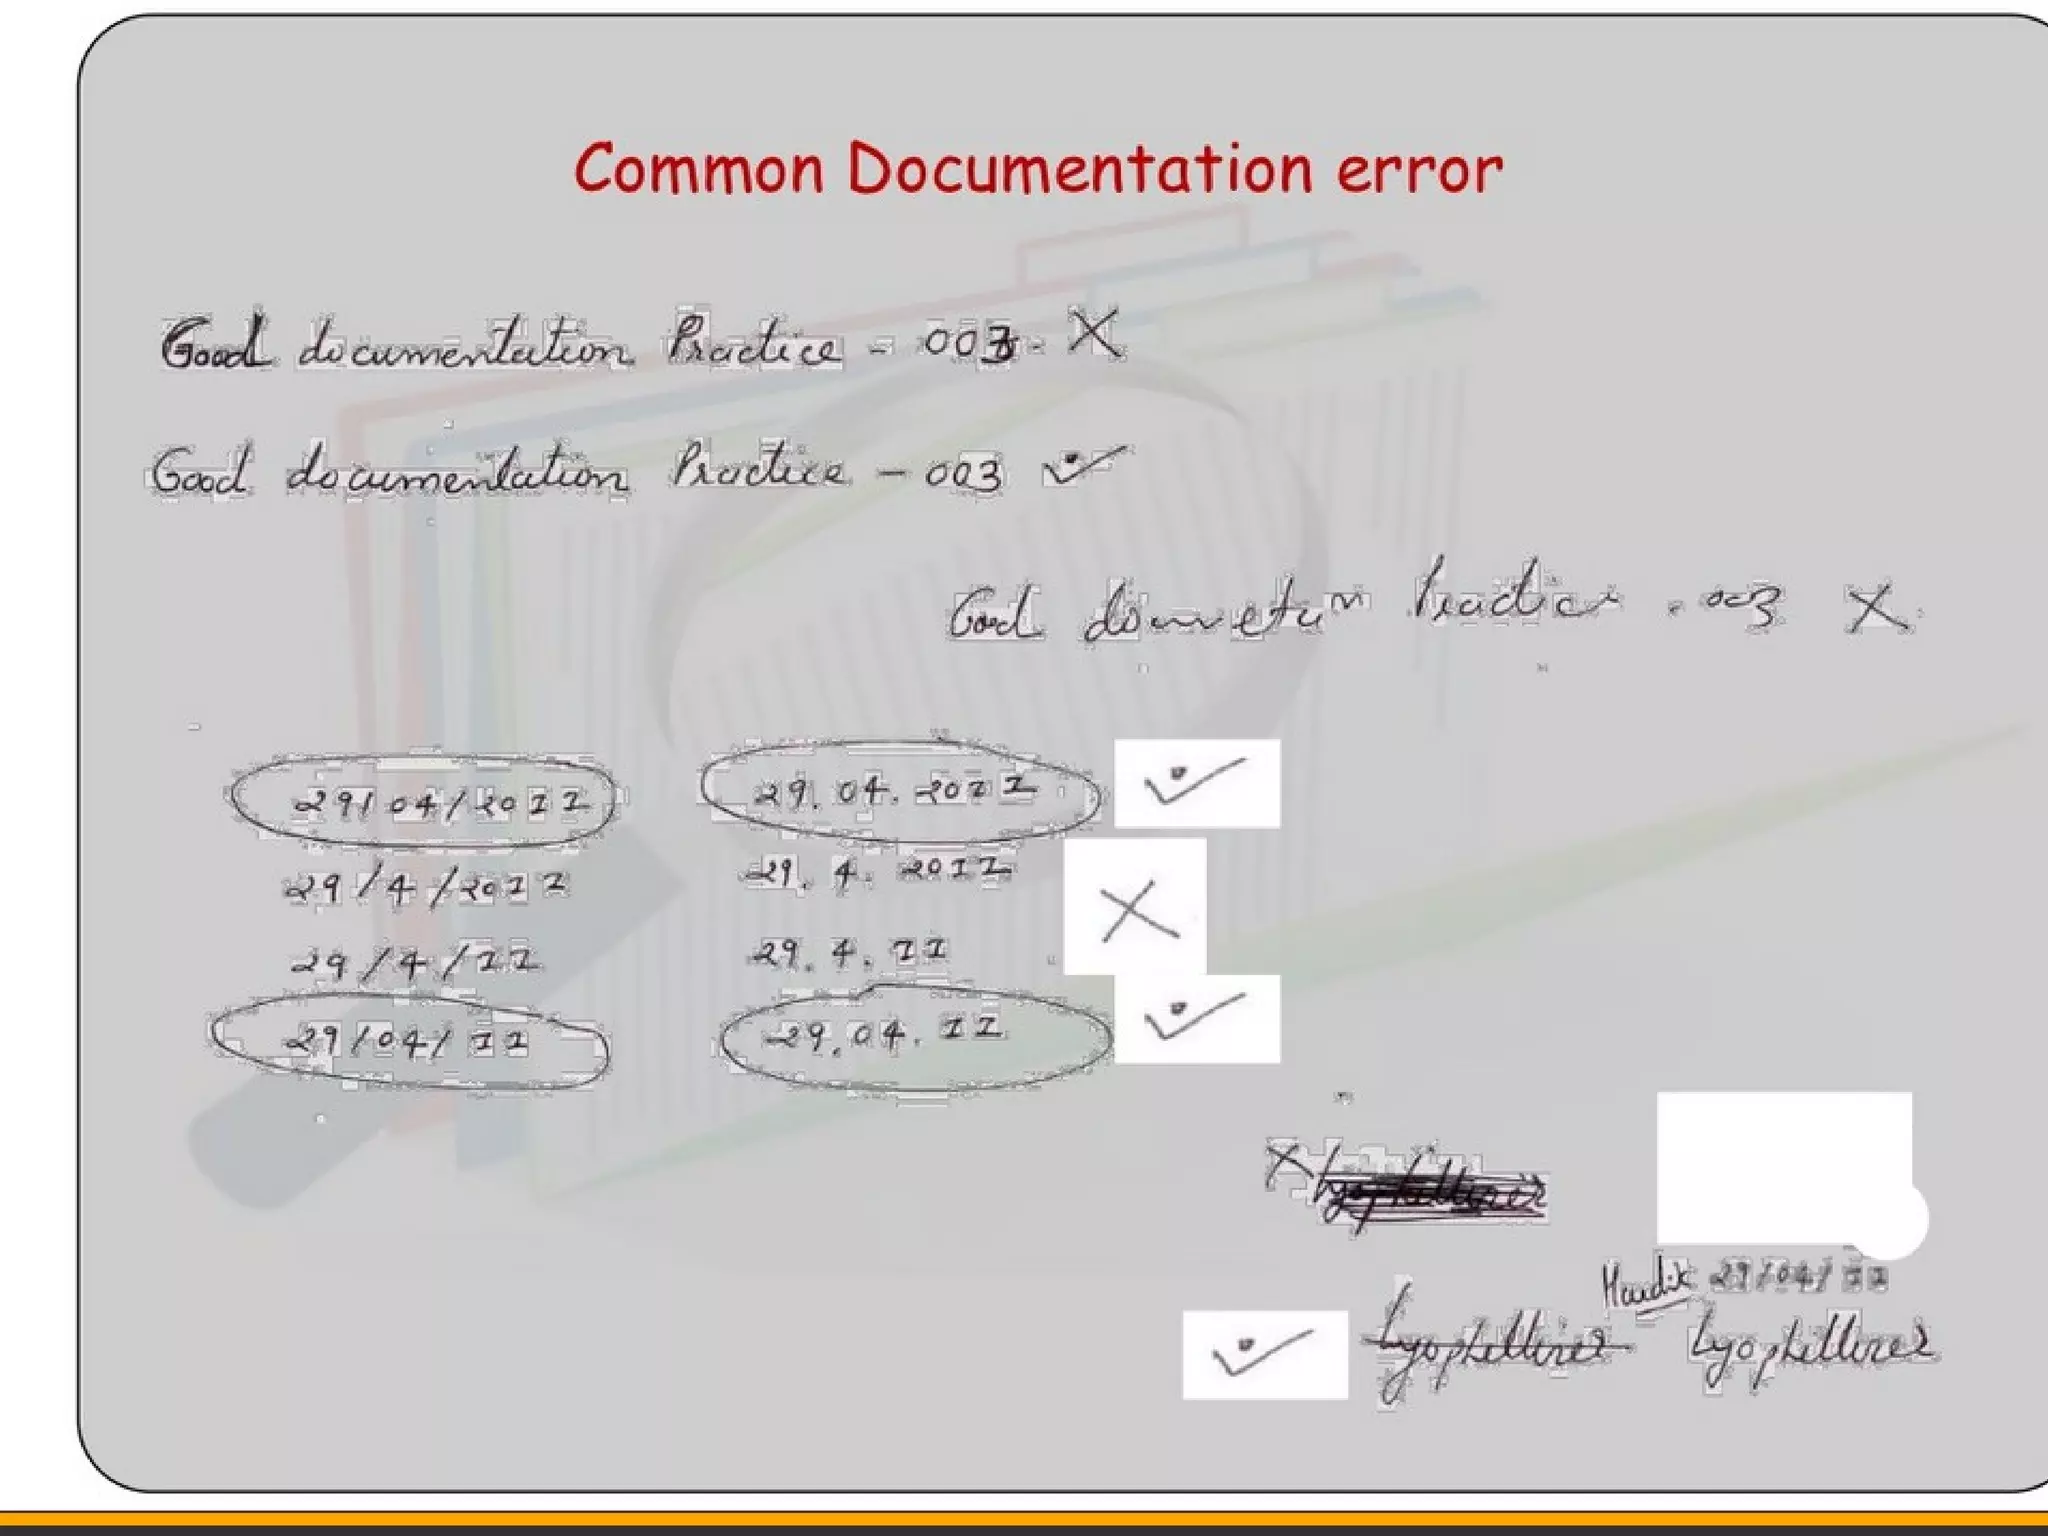 Common Documentation error
Good documentation Practice - 003
Good documentation Practice - 003
Good Practice . 003
29/04/2011 29.04.2011
29/4/2011 29.4.2011
29/4/11 29.4.11
29/04/11 29.04.11
Lyophillizer
29/04/11
Lyophillizer Lyophillizer